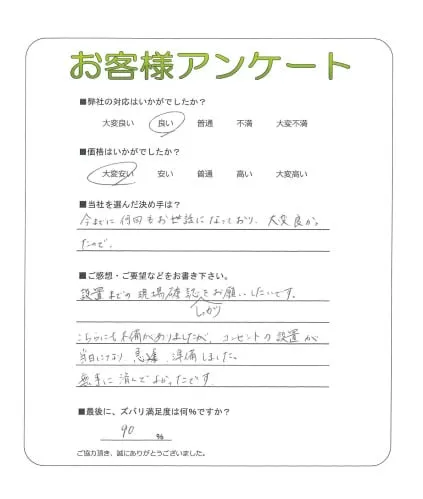 お客様アンケート
■弊社の対応はいかがでしたか？
大変良い 良い 普通 不満 大変不満
■価格はいかがでしたか？
大変安い 安い 普通 高い 大変高い
■当社を選んだ決め手は？
今までに何回もお世話になっており、大変良かっ
たので。
■ご感想・ご要望などをお書き下さい。
設置までの現場確認をお願いしたいです。
しっかり
こちらにも不備がありましたが、コンセントの設置が
当日になり 急遽 準備しました。
無事に済んでよかったです
■最後に、ズバリ満足度は何%ですか？
90 %
ご協力頂き、誠にありがとうございました。